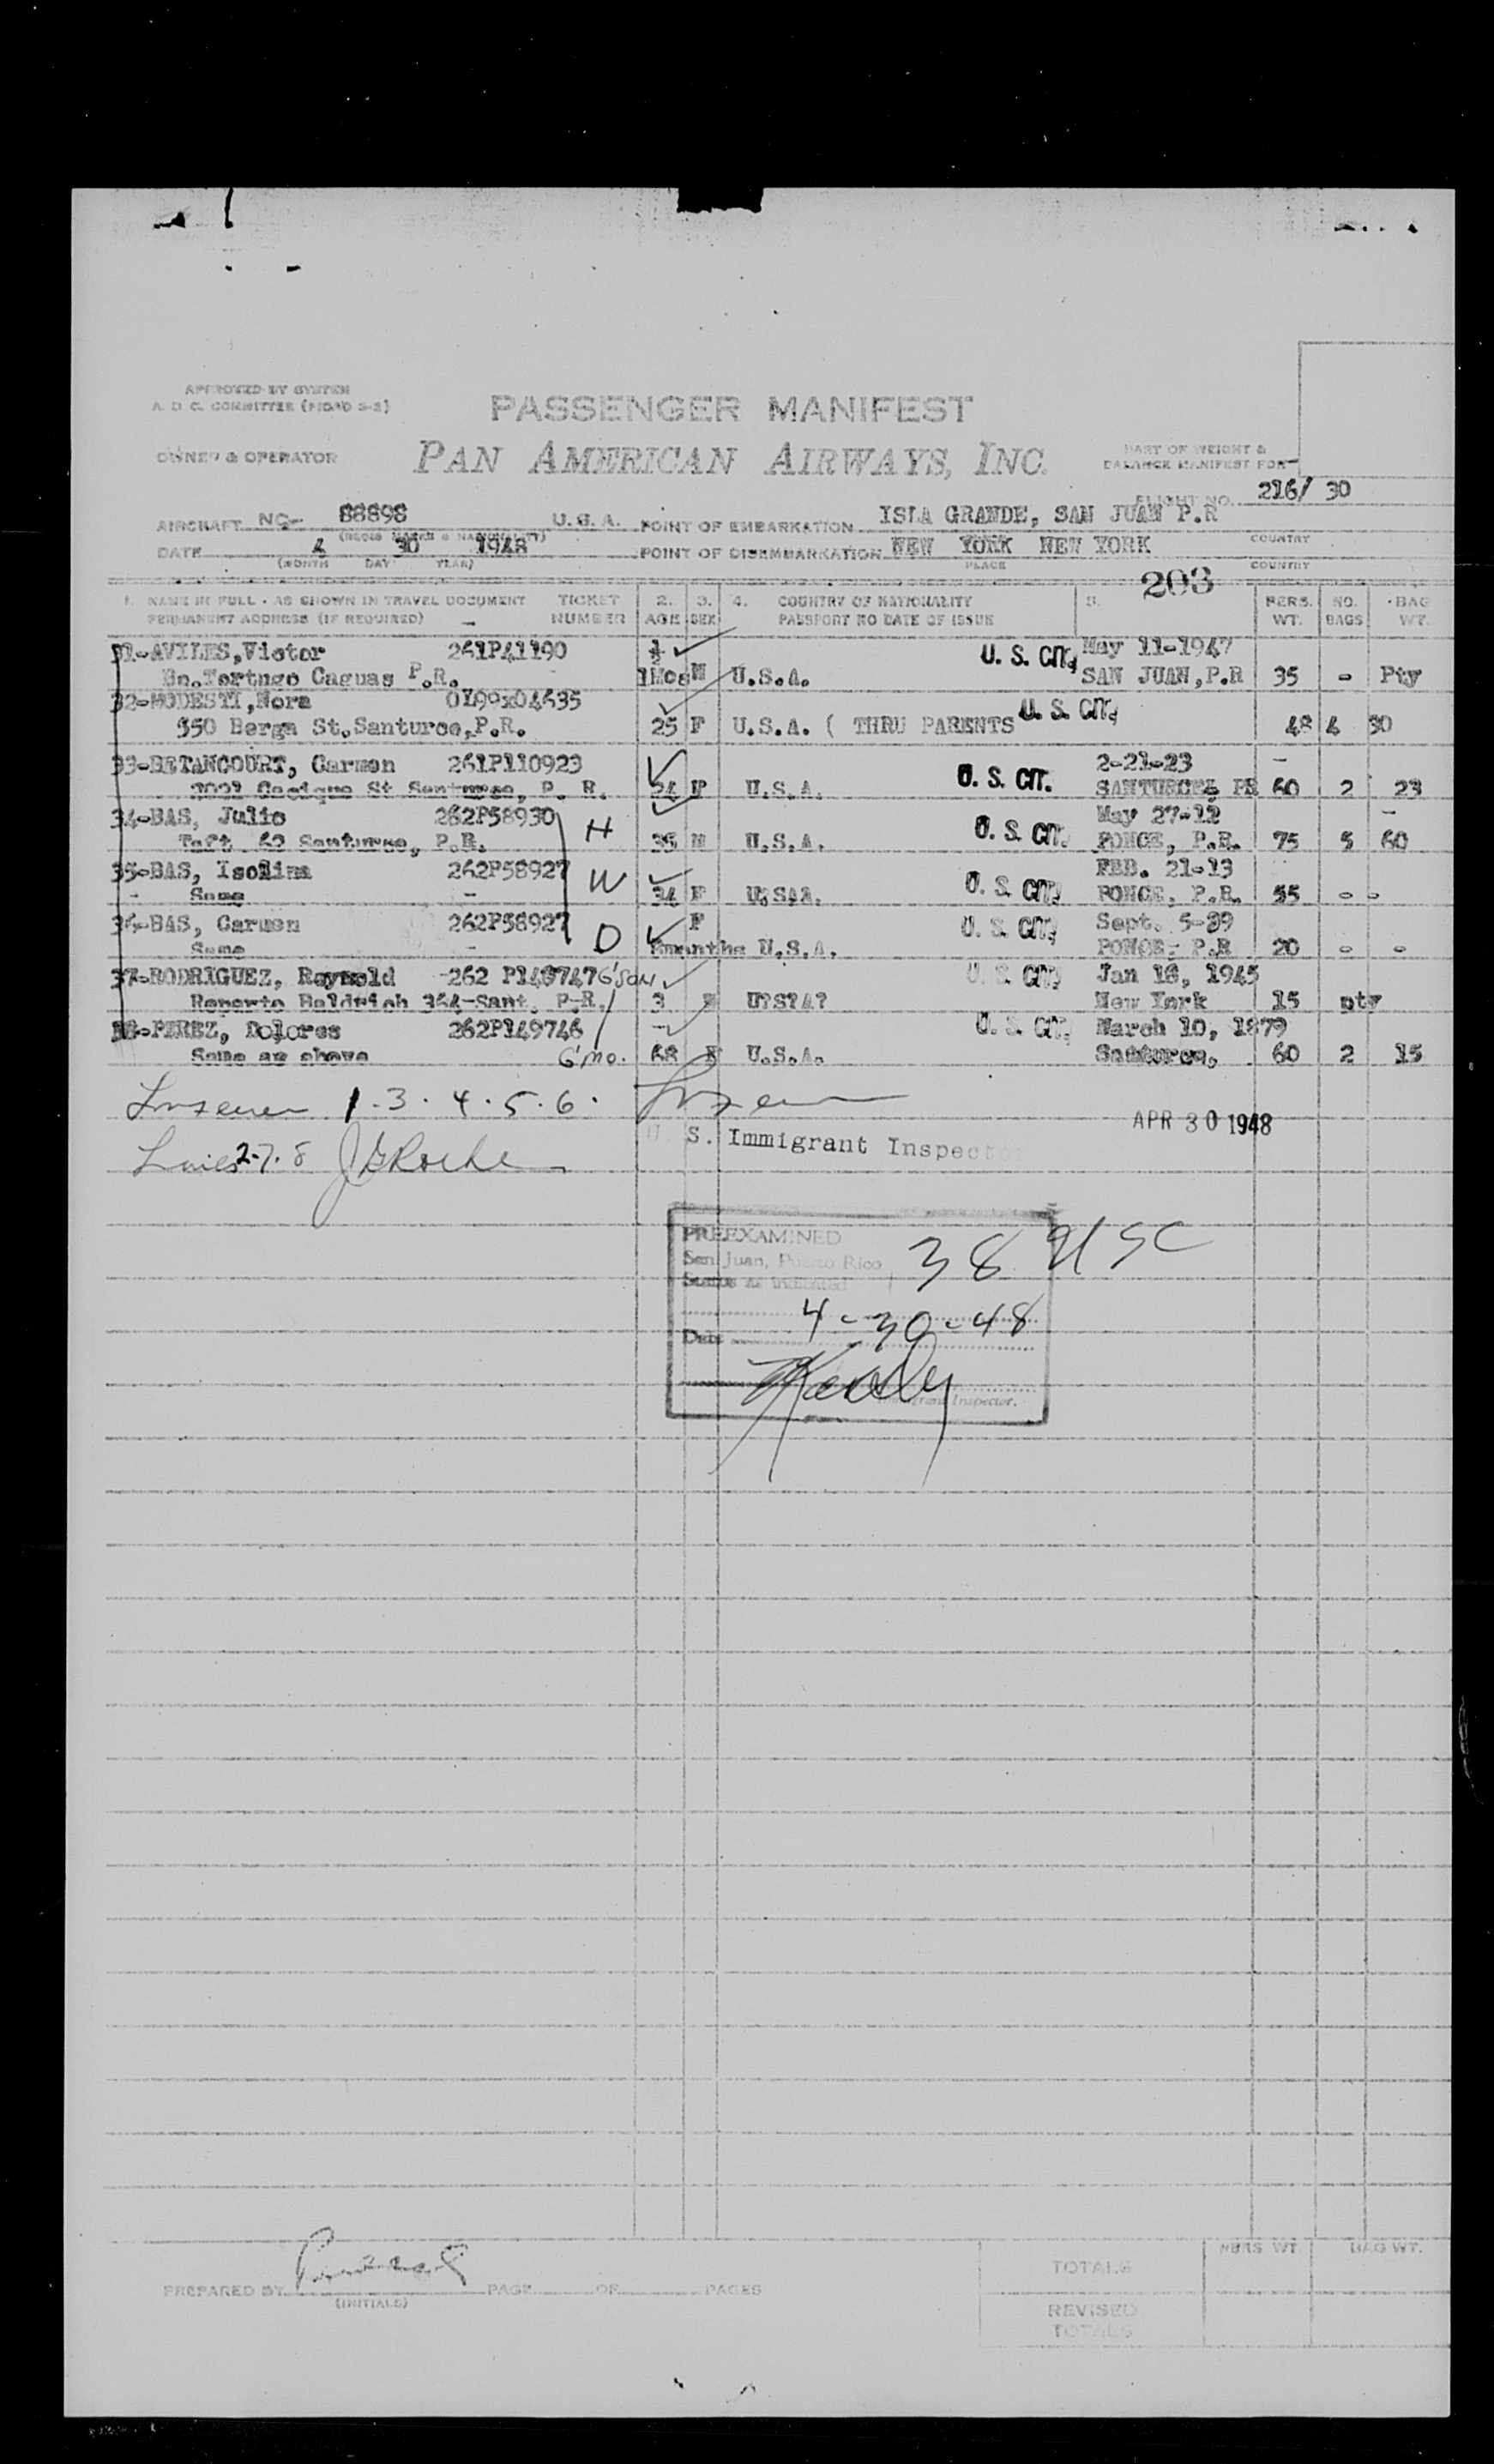 APPROVED BY SYSTEM
A. D. C. COMMITTEE
PASSENGER MANIFEST
OWNER & OPERATOR
PAN AMERICAN AIRWAYS, INC.
PART OF WEIGHT &
BALANCE MANIFEST FOR
FLIGHT NO. 216/ 30
AIRCRAFT NC- 88898 U.S.A. POINT OF EMBARKATION ISLA GRANDE, SAN JUAN P.R
DATE 4 30 1948 POINT OF DISEMBARKATION NEW YORK NEW YORK COUNTRY
(MONTH DAY YEAR) PLACE COUNTRY
203
1. NAME IN FULL - AS SHOWN IN TRAVEL DOCUMENT TICKET 2. 3. 4. COUNTRY OF NATIONALITY 5. PERS. NO. BAG
PERMANENT ADDRESS (IF REQUIRED) NUMBER AGE SEX PASSPORT NO DATE OF ISSUE WT. BAGS WT.
31-AVILES,Victor 261P41190 U. S. CIT. May 11-1947
Bo.Tortugo Caguas P.R. M U.S.A. SAN JUAN,P.R 35 - Pty
32-MODESTI,Nora U. S. CIT.
Berga St.Santurce,P.R. 25 F U.S.A. ( THRU PARENTS 48 4 30
33-BETANCOURT, Carmen 261P110923 U. S. CIT. 2-21-23 -
St Santurce, P. R. 24 F U.S.A. SANTURCE, PR 60 2 23
34-BAS, Julio 262P58930 H U. S. CIT. May 27-12 -
Taft 62 Santurce, P.R. 35 M U.S.A. PONCE, P.R. 75 5 60
35-BAS, Isolina 262P58927 W U. S. CIT. FEB. 21-13
- Same - 34 F U.S.A. PONCE, P.R. 55 - -
36-BAS, Carmen 262P58927 D F U. S. CIT. Sept. 5-39
Same - U.S.A. PONCE, P.R 20 - -
37-RODRIGUEZ, Raynold 262 P149747 G'son U. S. CIT. Jan 18, 1945
Roberto Baldrich 364-Sant. P-R. 3 M U?S?A? New York 15 pty
38-PEREZ, Dolores 262P149746 U. S. CIT. March 10, 1879
Same as above G'mo. 68 F U.S.A. Santurce, 60 2 15
1 - 3 . 4 . 5 . 6 .
APR 30 1948
U. S. Immigrant Inspector
2-7. 8
PREEXAMINED
San Juan, Puerto Rico 38 USC
Status as indicated
Date 4-30-48
Immigrant Inspector.
PREPARED BY PAGE OF PAGES
(INITIALS)
TOTALS PERS WT BAG WT.
REVISED
TOTALS